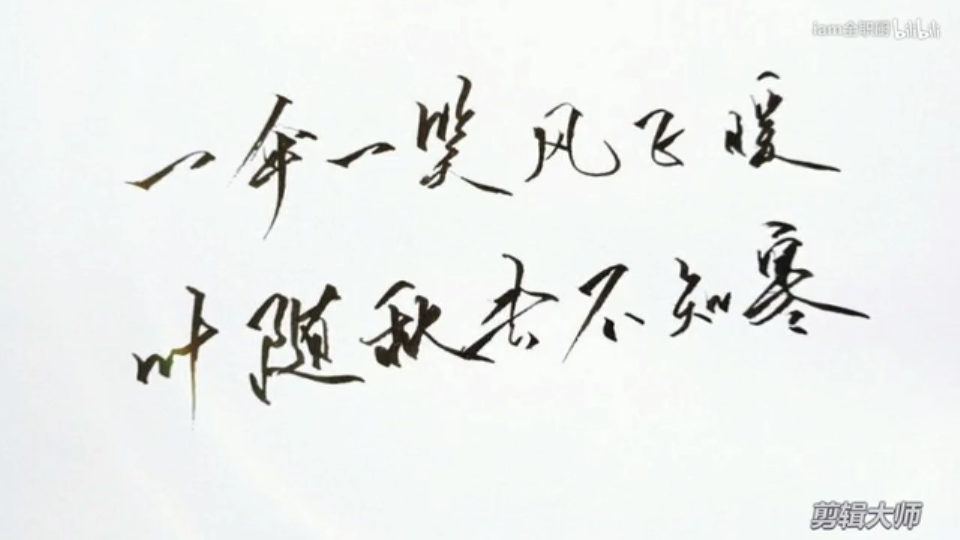 iam全职图 bilibili
一年一笑风飞暖
叶随秋去不知寒
剪辑大师